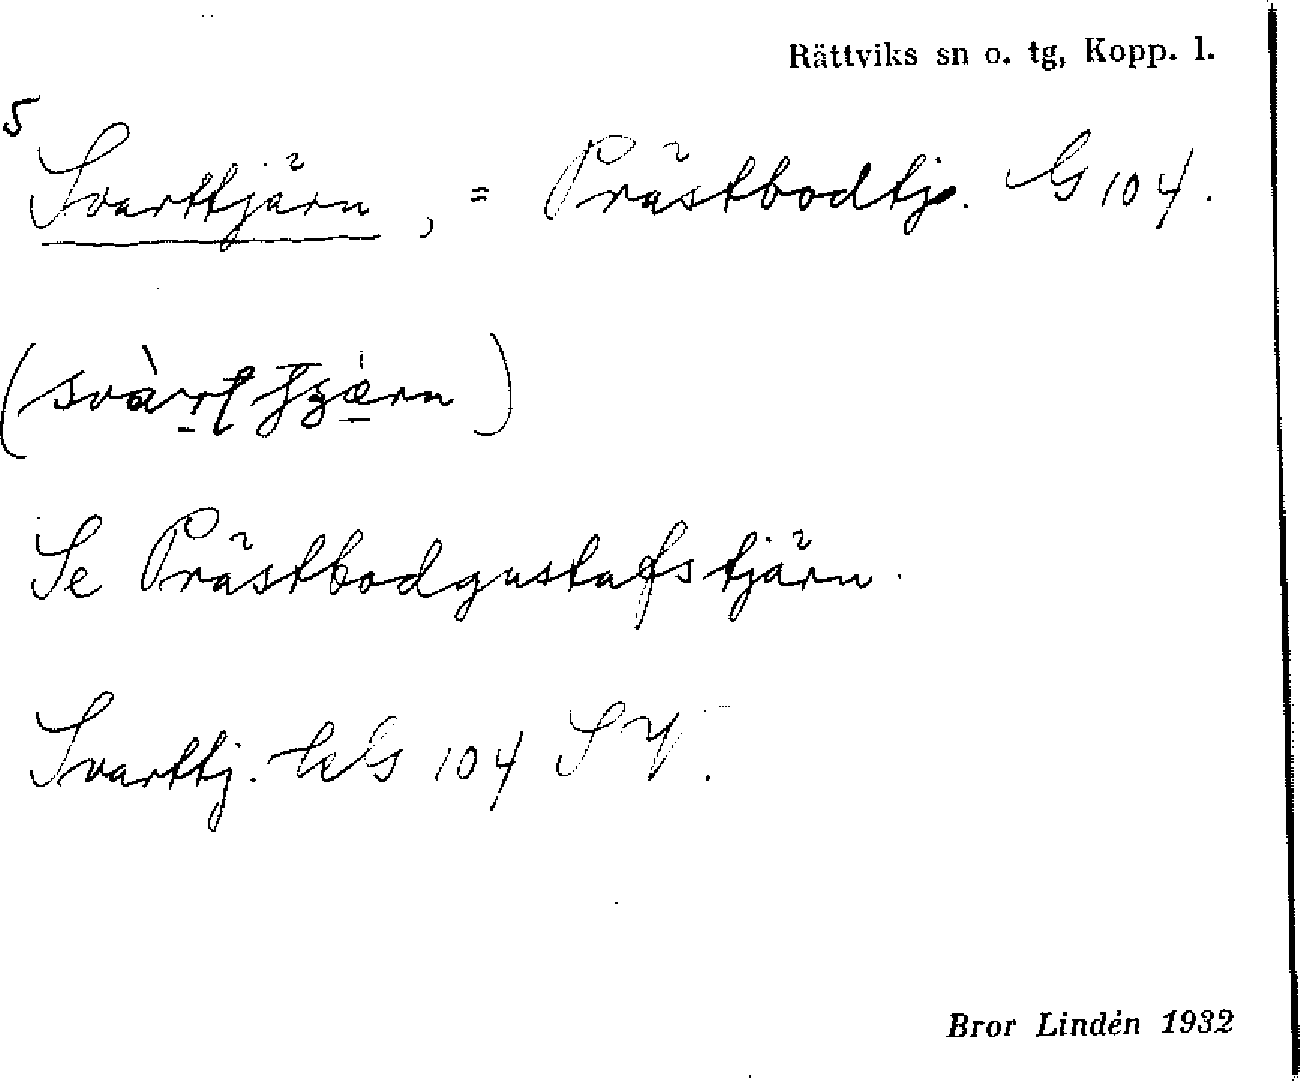 Rättviks sn o. tg, Kopp. l.
5
Svarttjärn, = Prästbodtj. G 104.
Se Prästbodgustafstjärn.
Svarttj. kG 104 SV.
Bror Lindén 1932